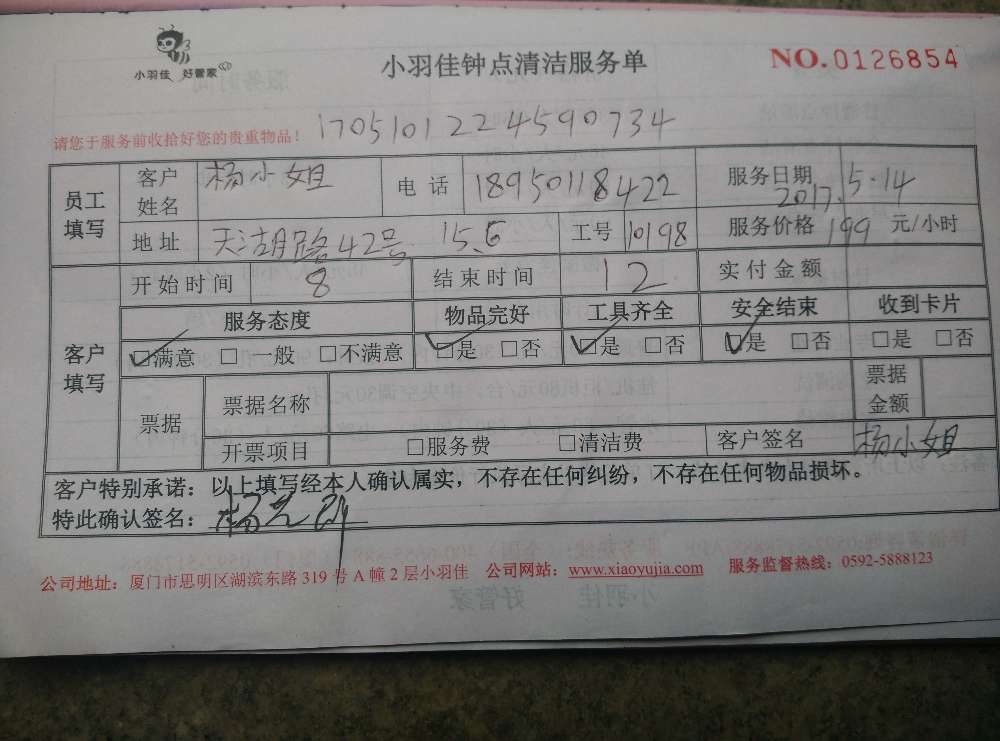 小羽佳 好管家
小羽佳钟点清洁服务单
NO.0126854
请您于服务前收拾好您的贵重物品！ 1705101224590734
员工填写 客户姓名 杨小姐 电话 18950118422 服务日期 2017.5.14
地址 天湖路42号 15.6 工号 10198 服务价格 199 元/小时
客户填写 开始时间 8 结束时间 12 实付金额
服务态度 物品完好 工具齐全 安全结束 收到卡片
☑满意 □一般 □不满意 ☑是 □否 ☑是 □否 ☑是 □否 □是 □否
票据 票据名称 票据金额
开票项目 □服务费 □清洁费 客户签名 杨小姐
客户特别承诺：以上填写经本人确认属实，不存在任何纠纷，不存在任何物品损坏。
特此确认签名：
公司地址：厦门市思明区湖滨东路 319 号 A 幢 2 层小羽佳 公司网站：www.xiaoyujia.com 服务监督热线：0592-5888123